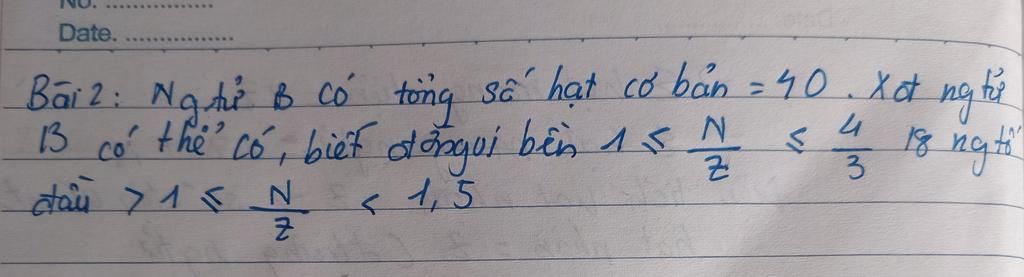 No. ................
Date. ................
Bài 2: Ng tử B có tổng số hạt cơ bản = 40. Xđ ng tử
B có thể có, biết đồng vị bền 1 ≤ N/Z ≤ 4/3 18 ng tố
đầu > 1 ≤ N/Z < 1,5